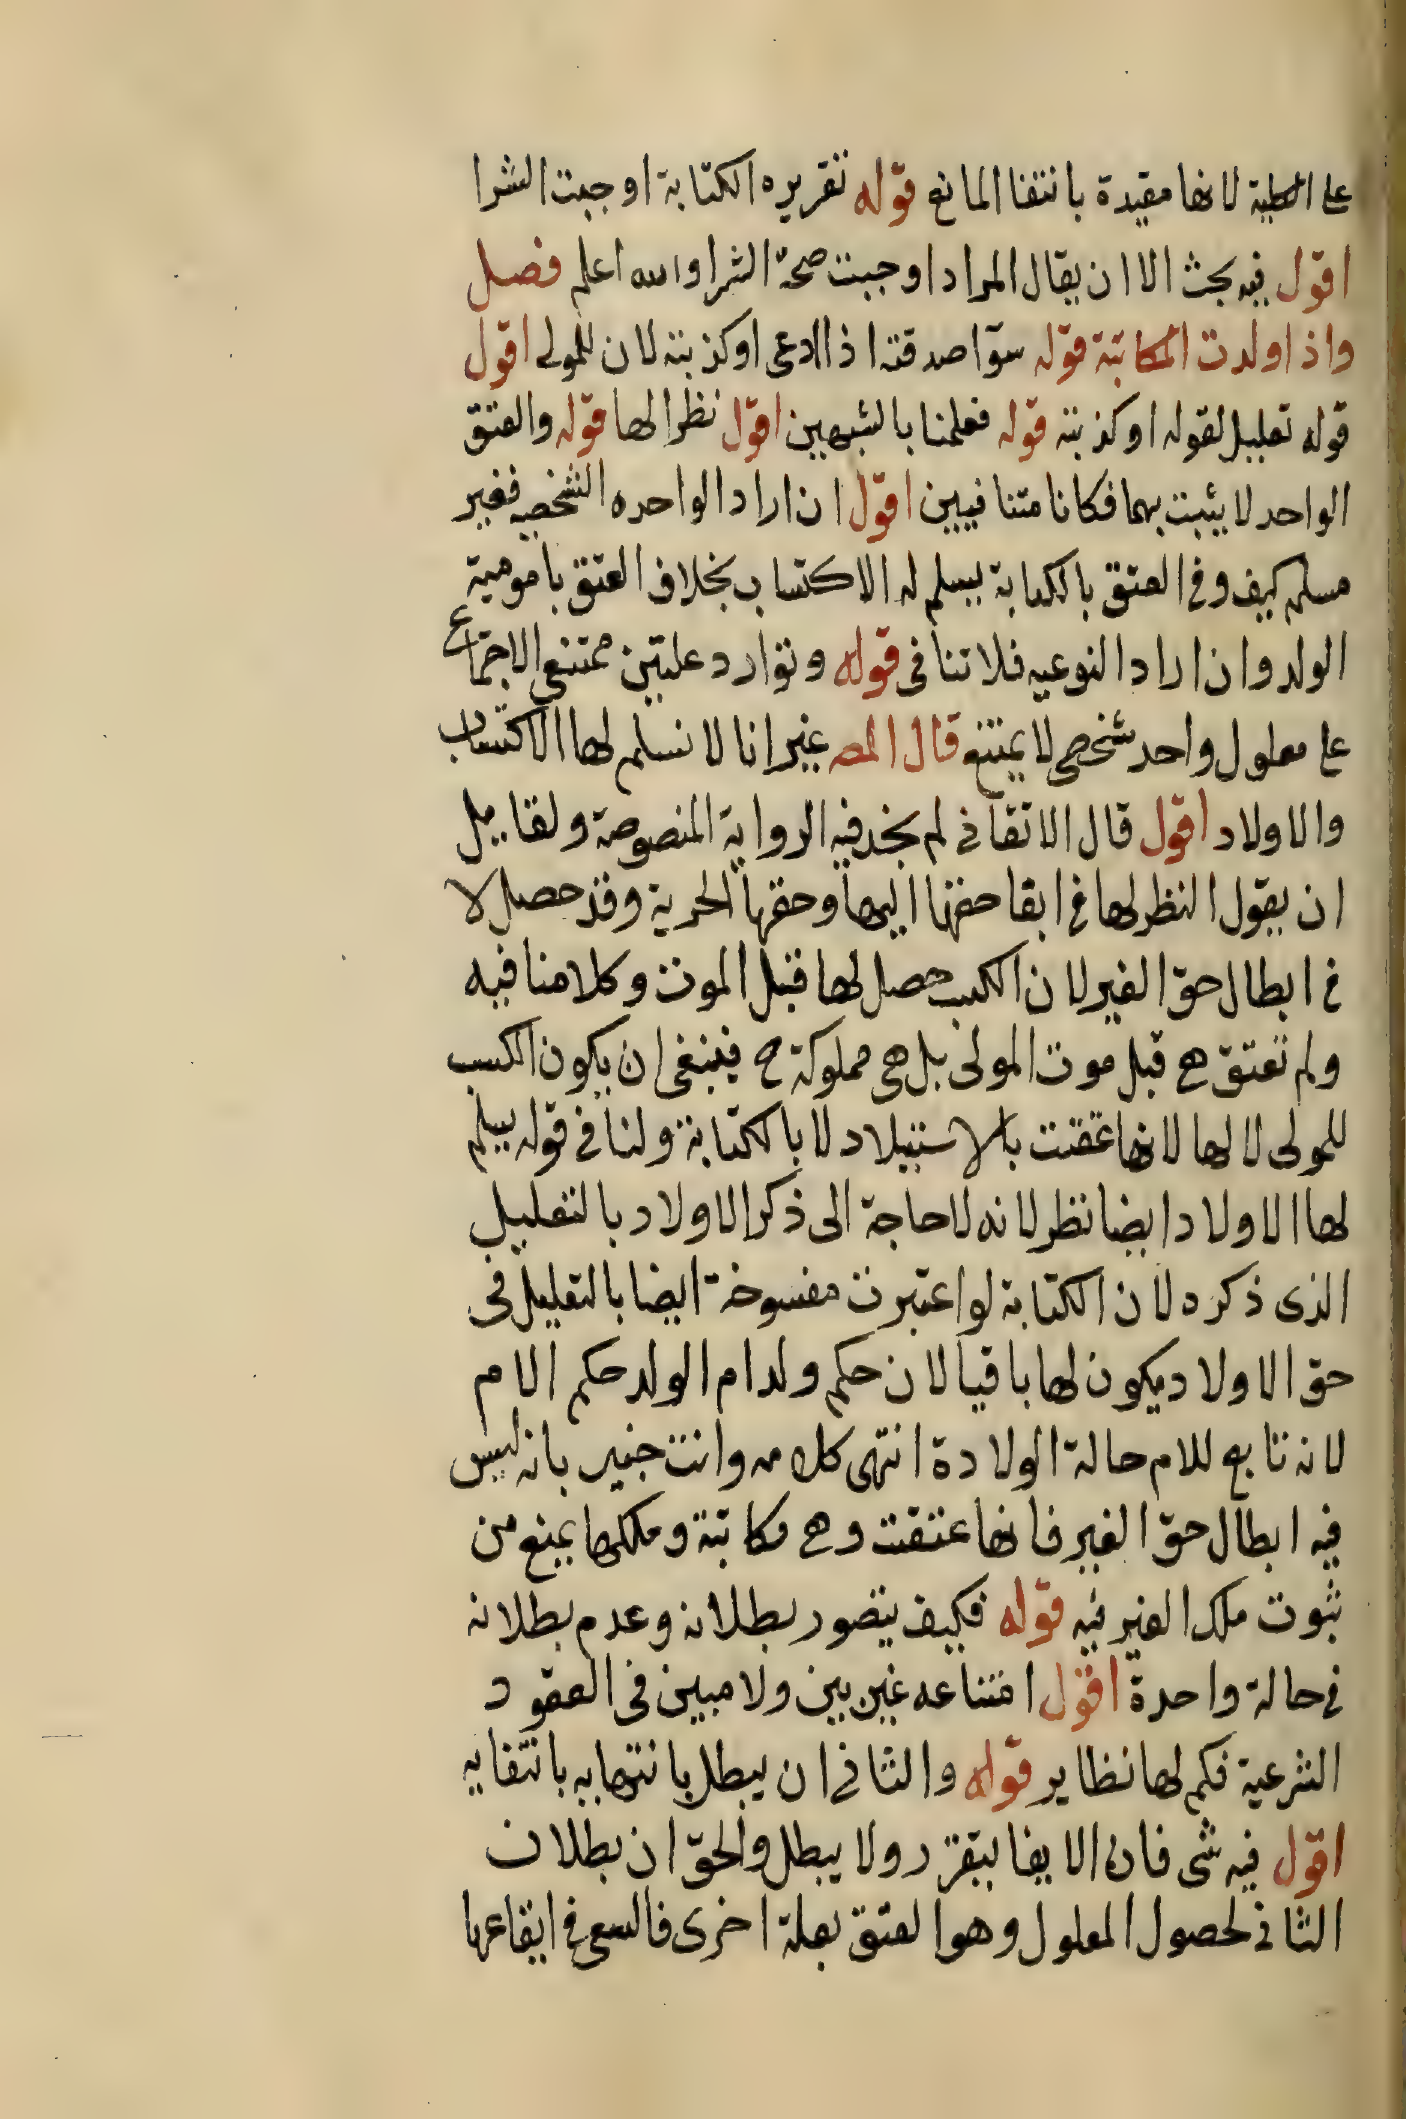 على الكلية لانها مقيدة بانتفا المانع قوله تقريره الكتابة اوجبت الشرا
اقول فيه بحث الا ان يقال المراد اوجبت صحة الشرا والله اعلم فصل
واذا ولدت المكاتبة قوله سوآ صدقته اذا ادعى او كذبته لان للمولى اقول
قوله تعليل لقوله او كذبته قوله فعلمنا بالشبهين اقول نظرا لها قوله والعتق
الواحد لا يثبت بهما فكانا متنافيين اقول ان اراد الواحده الشخصيه فغير
مسلم كيف وفي العتق بالكتابة يسلم له الاكتساب بخلاف العتق بامومية
الولد وان اراد النوعيه فلا تنافى قوله وتوارد علتين ممتنعى الاجتماع
على معلول واحد شخصى لا يمتنع قال المص غير انا لا نسلم لها الاكتساب
والاولاد اقول قال الاتقاني لم نجد فيه الرواية المنصوصة ولقايل
ان يقول النظر لها في ابقا حقها اليها وحقها الحرية وقد حصل لا
في ابطال حق الغير لان الكسب حصل لها قبل الموت وكلامنا فيه
ولم تعتق هي قبل موت المولى بل هى مملوكة ح فينبغى ان يكون الكسب
للمولى لا لها لانها عتقت بالاستيلاد لا بالكتابة ولنا في قوله يسلم
لها الاولاد ايضا نظر لانه لا حاجة الى ذكر الاولاد بالتعليل
الذى ذكره لان الكتابة لو اعتبرت مفسوخة ايضا بالتعليل فى
حق الاولاد يكون لها باقيا لان حكم ولد ام الولد حكم الام
لانه تابع للام حالة الولادة انتهى كلامه وانت خبير بانه ليس
فيه ابطال حق الغير فانها عتقت وهي مكاتبة وملكها يمنع من
ثبوت ملك الغير فيه قوله فكيف يتصور بطلانه وعدم بطلانه
في حالة واحدة اقول امتناعه غير بين ولا مبين فى العقود
الشرعية فكم لها نظاير قوله والثاني ان يبطل بانتهايه بانتفايه
اقول فيه شى فان الايفا يتقرر ولا يبطل والحق ان بطلان
الثاني لحصول المعلول وهو العتق بعلة اخرى فالسعى في ايقاعها